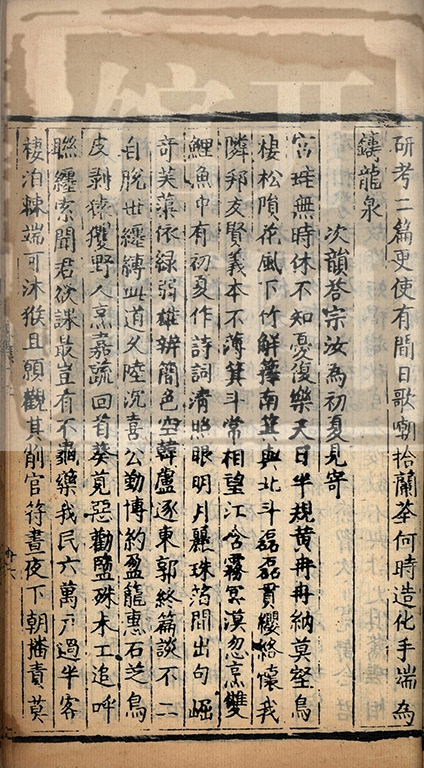 研考二篇更使有間日歌嘲拾蘭荃何時造化手端為
鑄龍泉
次韻答宗汝為初夏見寄
官蛙無時休不知憂復樂天日半規黄冉冉納莫壑鳥
棲松隕花風下竹解籜南箕與北斗磊磊貫纓絡懷我
隣邦友賢義本不薄箕斗常相望江含霧冥漠忽烹雙
鯉魚中有初夏作詩詞清照眼明月麗珠箔閒出句崛
奇芙蕖依緑弱雄辨簡色空韓盧逐東郭終篇談不二
自脫世纏縛此道久陸沉喜公勤博約盈籠惠石芝鳥
皮剥猿玃野人烹嘉蔬回首葵莧惡勸鹽殊未工追呼
聯纏索聞君欲課最豈有不龜藥我民六萬户過半客
棲泊棘端可沐猴且願觀其削官符晝夜下朝播責莫